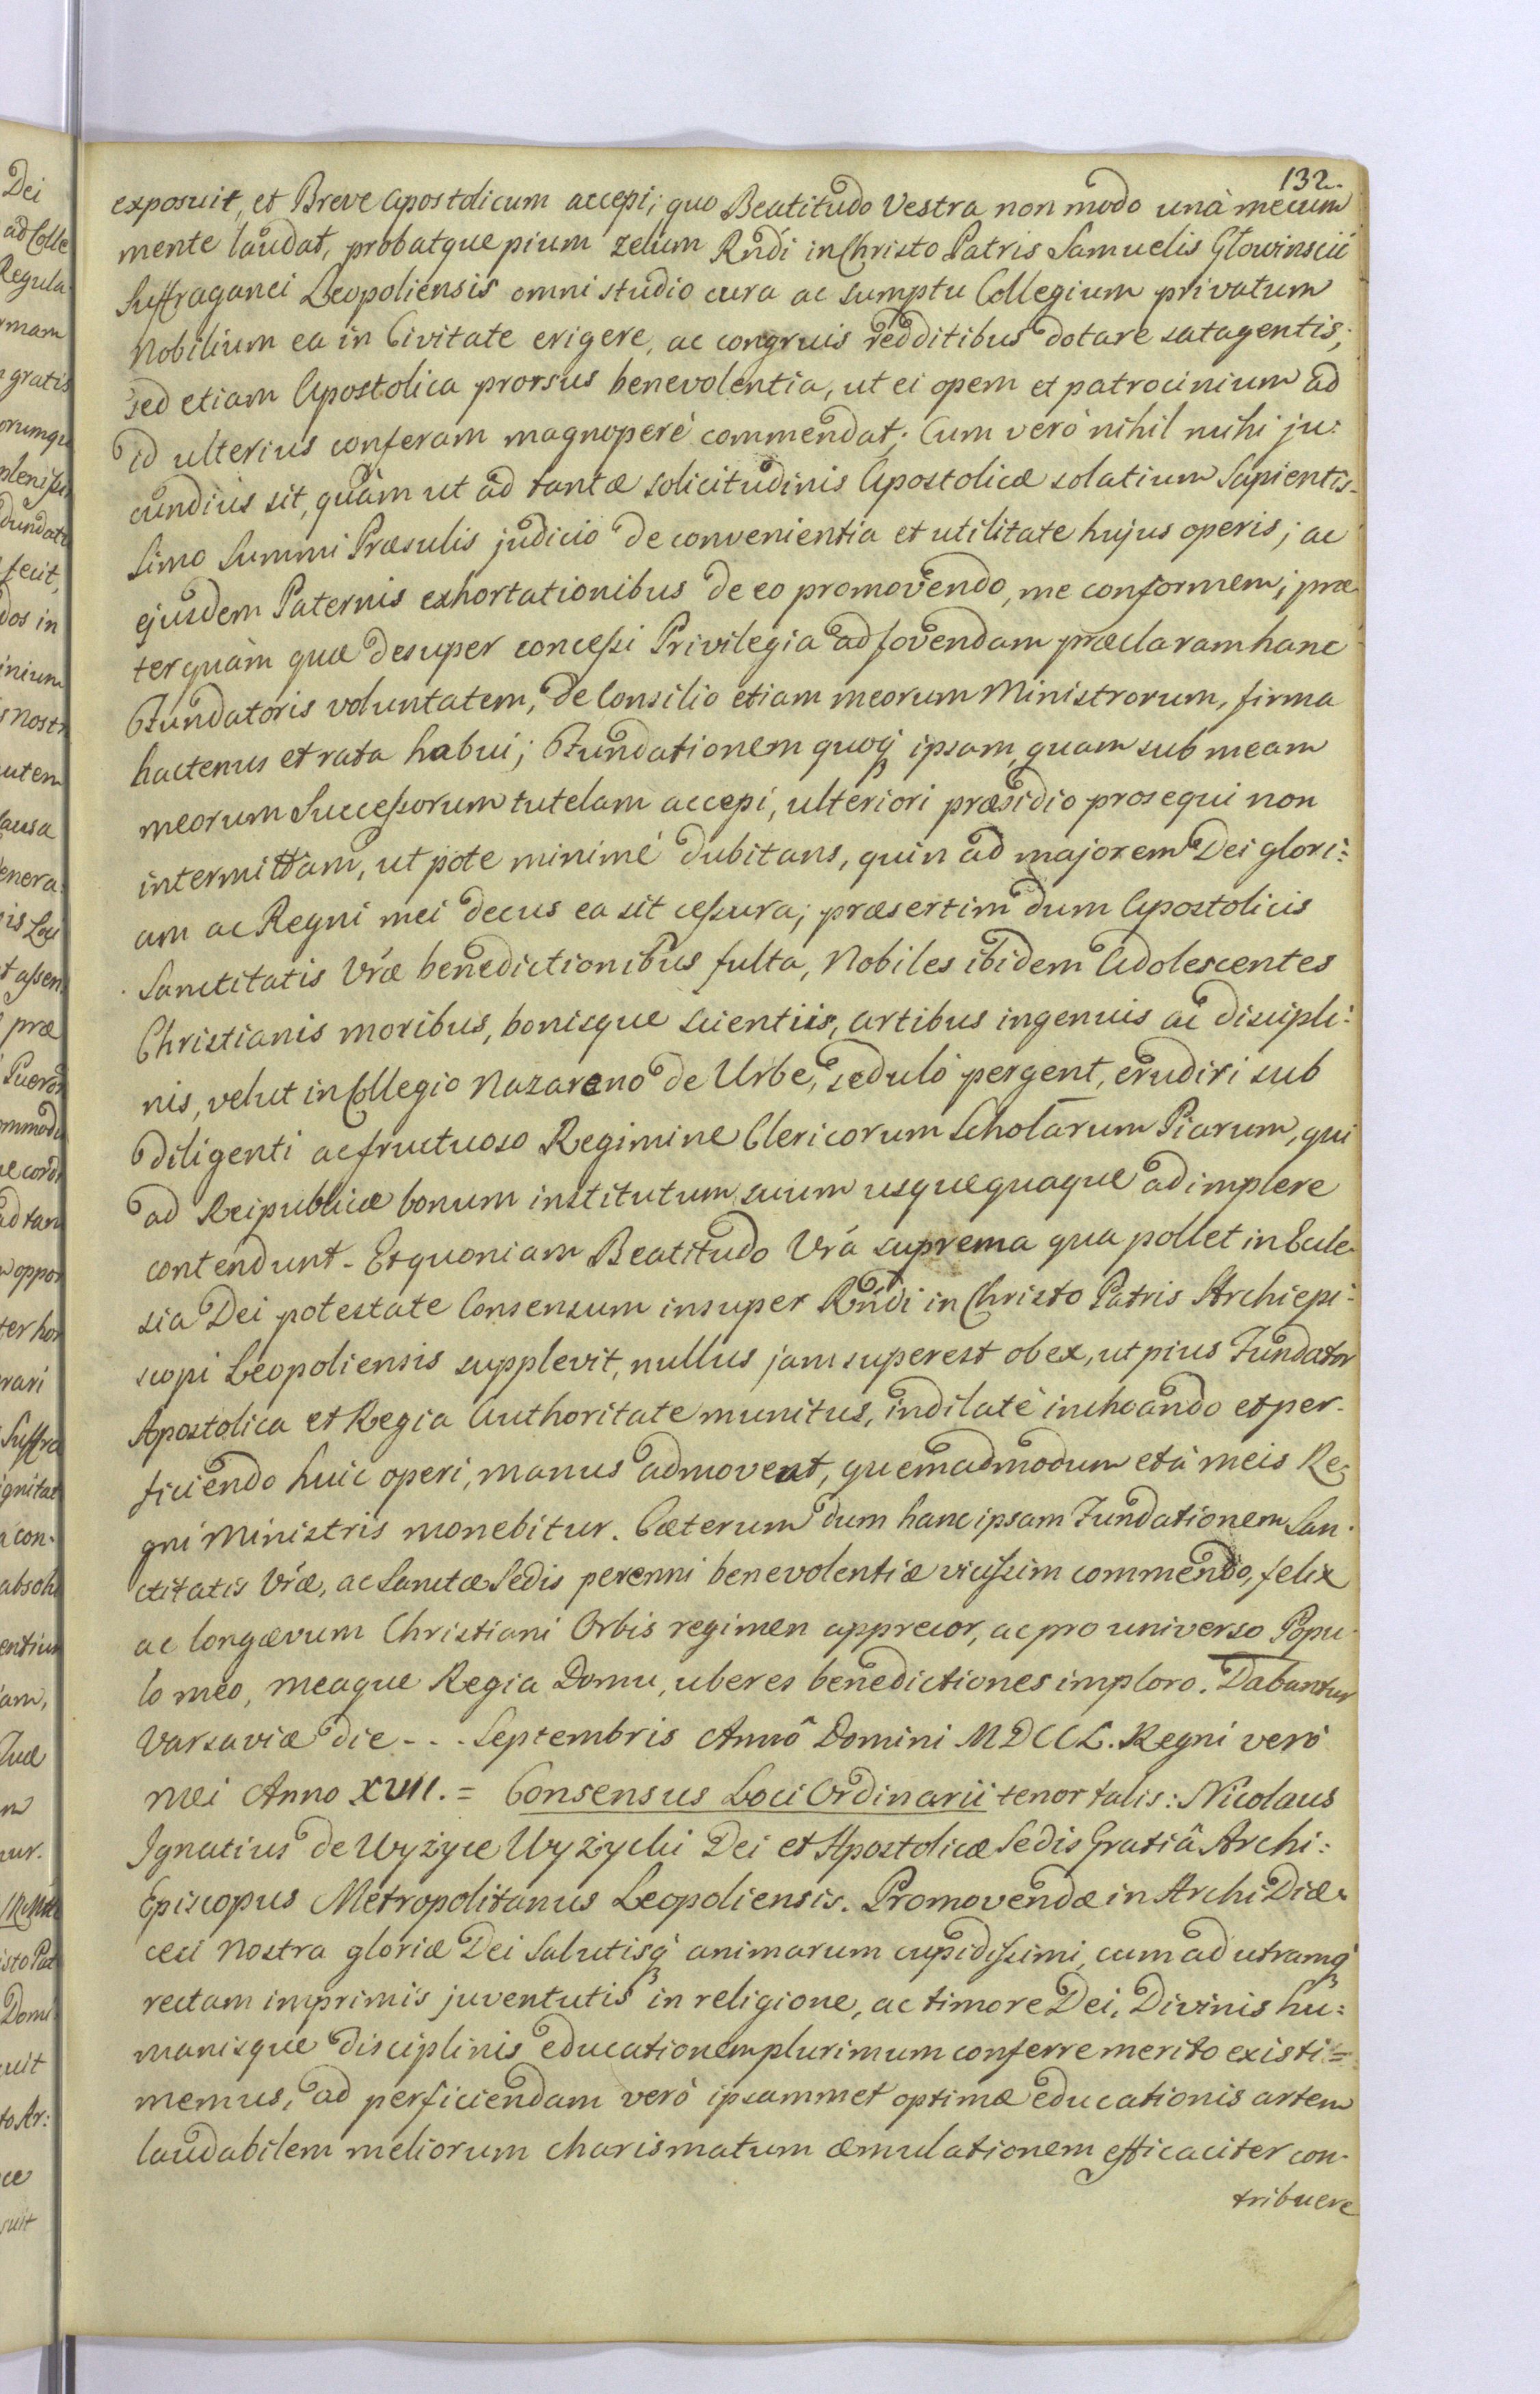 132.
exposuit, et Breve Apostolicum accepi; quo Beatitudo Vestra non modo unà mecum
mente laudat, probatque pium zelum Rndi in Christo Patris Samuelis Głowinscii
Suffraganei Leopoliensis omni studio cura ac sumptu Collegium privatum
Nobilium ea in Civitate erigere, ac congruis redditibus dotare satagentis;
sed etiam Apostolica prorsus benevolentia, ut ei opem et patrocinium ad
id ulterius conferam magnoperè commendat; Cum verò nihil mihi ju:
cundius sit, quàm ut ad tantæ solicitudinis Apostolicæ solatium Sapientis-
simo Summi Præsulis judicio de convenientia et utilitate hujus operis; ac
ejusdem Paternis exhortationibus de eo promovendo, me conformem; præ
terquàm quæ desuper concessi Privilegia ad fovendam præclaram hanc
Fundatoris voluntatem, de Consilio etiam meorum Ministrorum, firma
hactenus et rata habui; Fundationem quoq ipsam, quam sub meam
meorum Successorum tutelam accepi, ulteriori præsidio prosequi non
intermittam, ut pote minimé dubitans, quin ad majorem Dei glori:
am ac Regni mei decus ea sit cessura; præsertim dum Apostolicis
Sanctitatis Vræ benedictionibus fulta, Nobiles ibidem Adolescentes
Christianis moribus, bonisque scientiis, artibus ingenuis ac discipli:
nis, velut in Collegio Nazareno de Urbe, sedulò pergent, erudiri sub
diligenti ac fructuoso Regimine Clericorum Scholarum Piarum, qui
ad Reipublicæ bonum institutum suum usquequaque adimplere
contendunt. Et quoniam Beatitudo Vrá suprema qua pollet in Eccle
sia Dei potestate Consensum insuper Rndi in Christo Patris Archiepi:
scopi Leopoliensis supplevit, nullus jam superest obex, ut pius Fundator
Apostolica et Regia Authoritate munitus, indilatè inchoando et per-
ficiendo huic operi, manus admoveat, quemadmodum et à meis Re:
gni Ministris monebitur. Cæterum dum hanc ipsam Fundationem San:
ctitatis Vræ, ac Sanctæ Sedis perenni benevolentiæ vicissim commendo, felix
ac longævum Christiani Orbis regimen apprecor, ac pro universo Popu
lo meo, meaque Regia Domu, uberes benedictiones imploro. Dabantur
Varsaviæ die - - - Septembris Annô Domini MDCCL. Regni verò
mei Anno XVII. = Consensus Loci Ordinarii tenor talis: Nicolaus
Ignatius de Wyżyce Wyżycki Dei et Apostolicæ Sedis Gratiâ Archi:
Episcopus Metropolitanus Leopoliensis. Promovendæ in ArchiDiæ:
cesi Nostra gloriæ Dei Salutisq animarum cupidissimi, cum ad utramq
rectam imprimis juventutis in religione, ac timore Dei, Divinis hu:
manisque disciplinis educationem plurimum conferre merito existi=
memus, ad perficiendam verò ipsammet optimæ educationis artem
laudabilem meliorum charismatum æmulationem efficaciter con-
tribuere